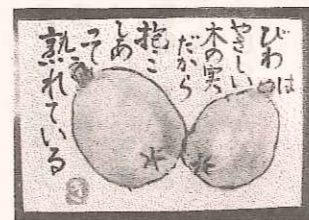 びわは
やさしい
木の実
だから
抱こ
しあ
って
熟れている